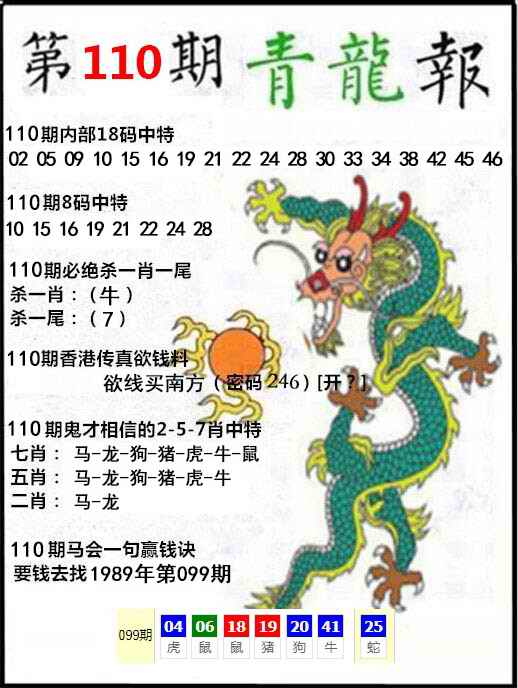 第110期青龍報
110期内部18码中特
02 05 09 10 15 16 19 21 22 24 28 30 33 34 38 42 45 46
110期8码中特
10 15 16 19 21 22 24 28
110期必绝杀一肖一尾
杀一肖：（牛）
杀一尾：（7）
110期香港传真欲钱料
欲线买南方（密码246）[开？]
110期鬼才相信的2-5-7肖中特
七肖： 马-龙-狗-猪-虎-牛-鼠
五肖： 马-龙-狗-猪-虎-牛
二肖： 马-龙
110期马会一句赢钱诀
要钱去找1989年第099期
099期 04 06 18 19 20 41 25
虎 鼠 鼠 猪 狗 牛 蛇